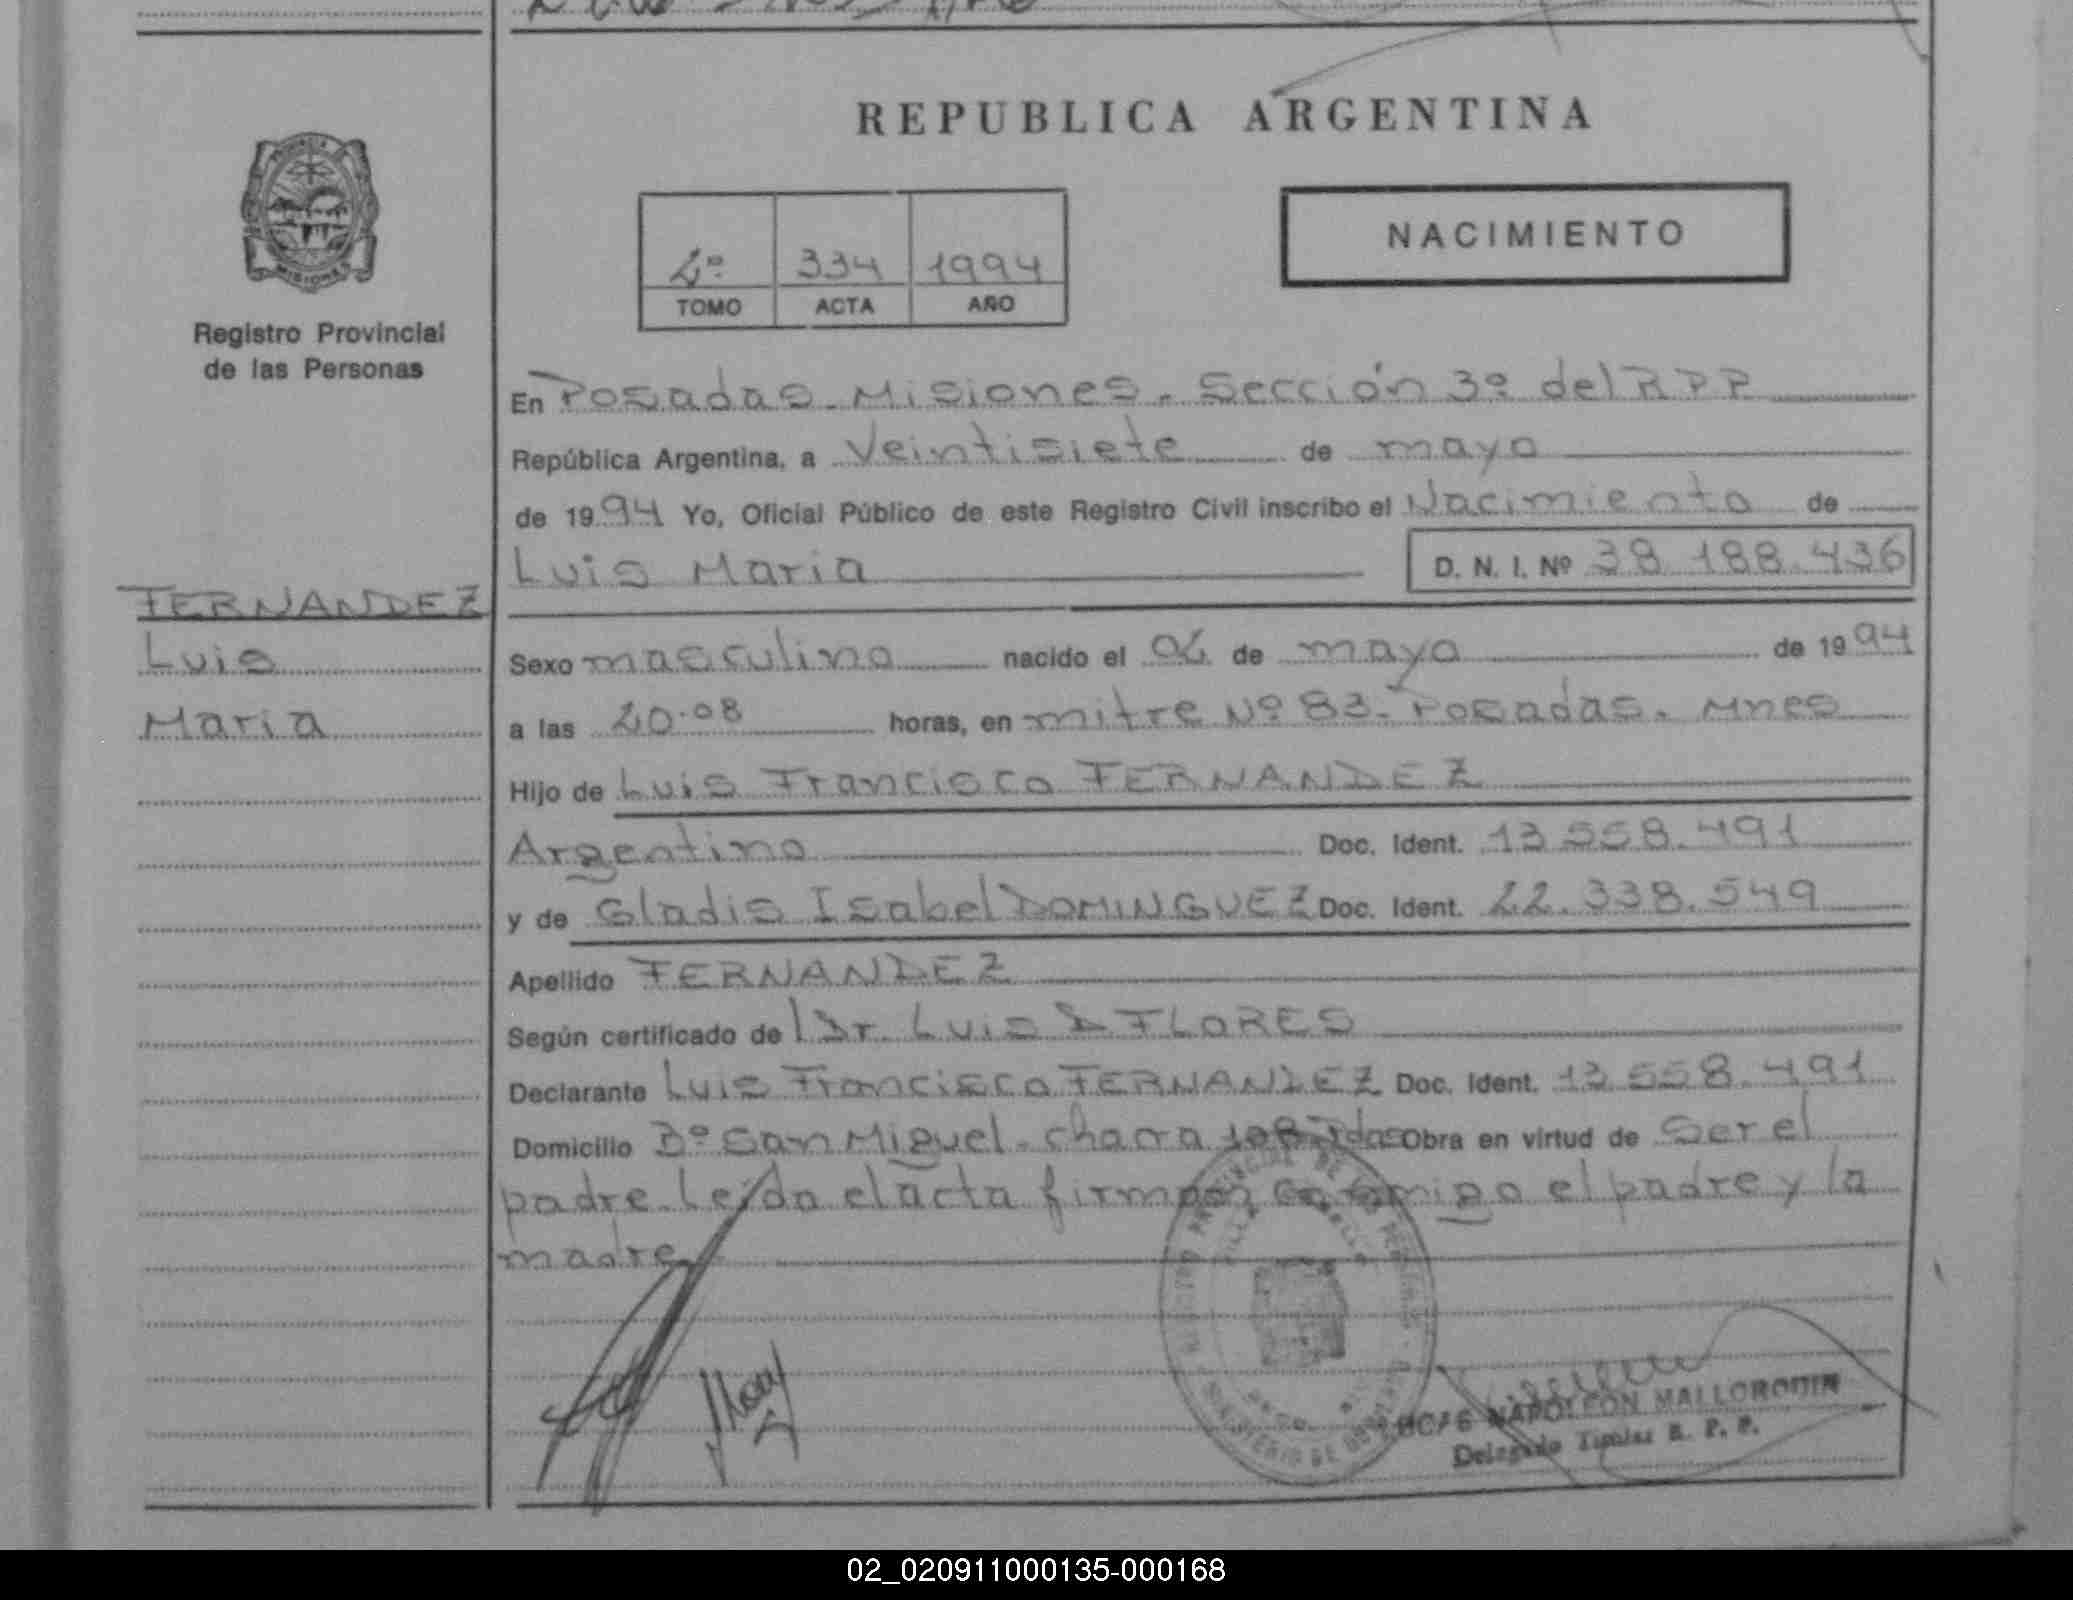 REPUBLICA ARGENTINA
PROVINCIA
MISIONES
Registro Provincial
de las Personas
2º 334 1994
TOMO ACTA AÑO
NACIMIENTO
En Posadas. Misiones. Sección 3º del R P P
República Argentina, a Veintisiete de mayo
de 1994 Yo, Oficial Público de este Registro Civil inscribo el Nacimiento de
Luis Maria D. N. I. Nº 38 188.436
FERNANDEZ
Luis
Maria
Sexo masculino nacido el de mayo de 1994
a las 20.08 horas, en mitre Nº 83. Posadas. Mnes
Hijo de Luis Francisco FERNANDEZ
Argentino Doc. Ident. 13 558.491
y de Gladis Isabel DOMINGUEZ Doc. Ident. 22.338.549
Apellido FERNANDEZ
Según certificado de Dr. Luis FLORES
Declarante Luis Francisco FERNANDEZ Doc. Ident. 13 558.491
Domicilio Bº San Miguel. chacra Obra en virtud de Ser el
padre. Leida el acta firman conmigo el padre y la
madre
NAPOLEON
Delegado Titular R. P. P.
02_020911000135-000168